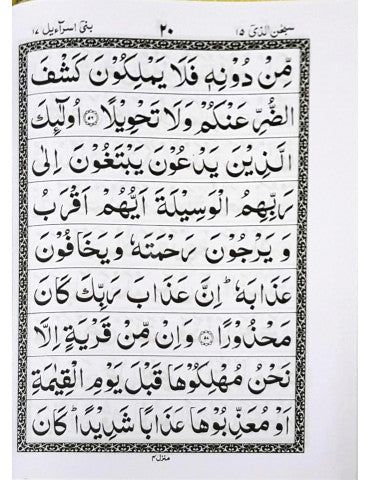 سبحٰن الذی ۱۵ ۲۰ بنیٓ اسرآءیل ۱۷
مِّنْ دُوْنِهٖ فَلَا يَمْلِكُوْنَ كَشْفَ
الضُّرِّ عَنْكُمْ وَلَا تَحْوِيْلًا ۝۵۶ اُولٰٓئِكَ
الَّذِيْنَ يَدْعُوْنَ يَبْتَغُوْنَ اِلٰى
رَبِّهِمُ الْوَسِيْلَةَ اَيُّهُمْ اَقْرَبُ
وَ يَرْجُوْنَ رَحْمَتَهٗ وَيَخَافُوْنَ
عَذَابَهٗ ؕ اِنَّ عَذَابَ رَبِّكَ كَانَ
مَحْذُوْرًا ۝۵۷ وَاِنْ مِّنْ قَرْيَةٍ اِلَّا
نَحْنُ مُهْلِكُوْهَا قَبْلَ يَوْمِ الْقِيٰمَةِ
اَوْ مُعَذِّبُوْهَا عَذَابًا شَدِيْدًا ؕ كَانَ
منزل ۴